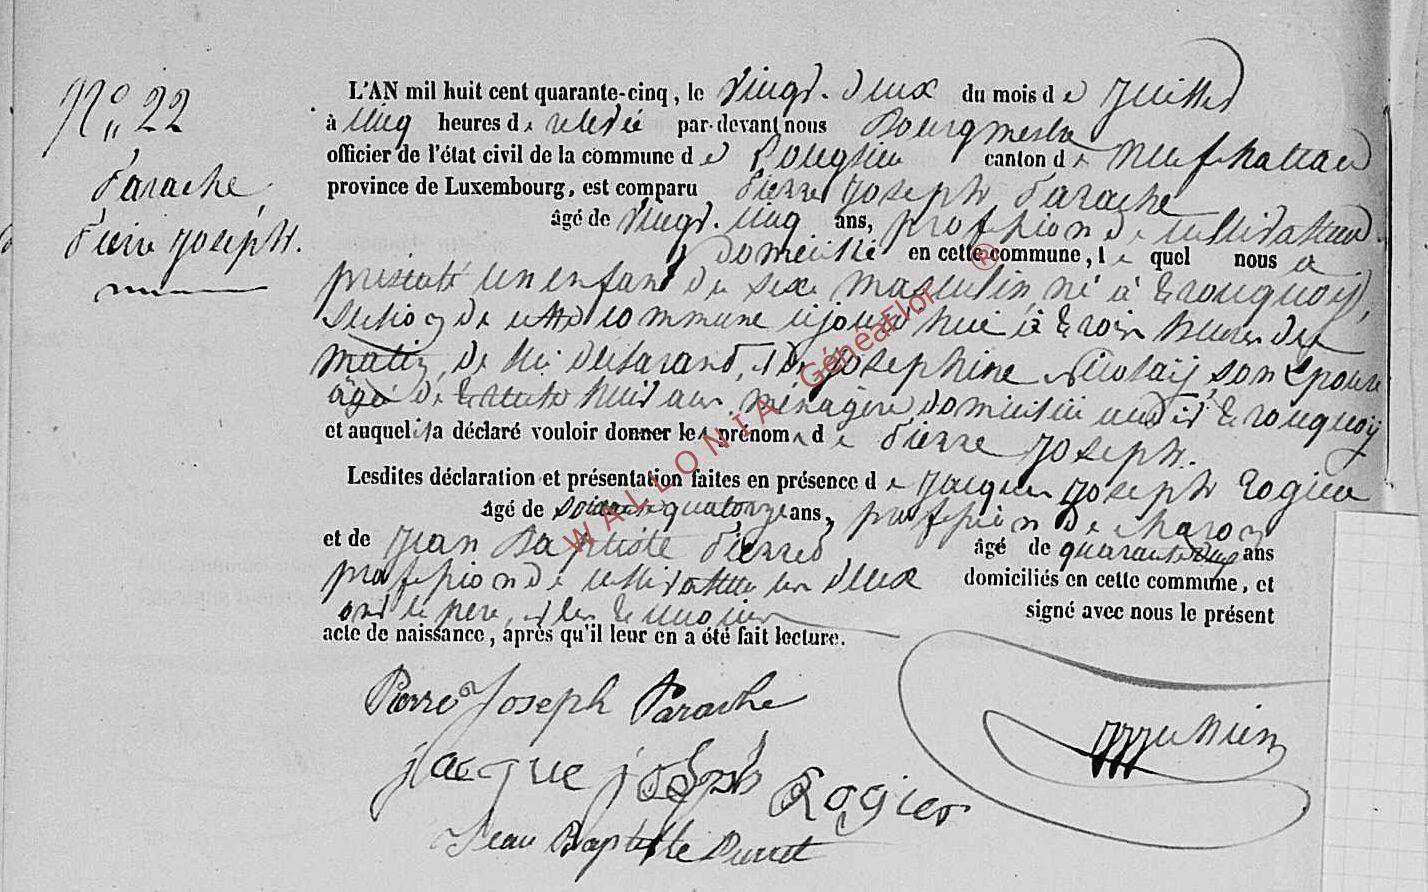 N° 22
Parache,
Pierre Joseph.
L'AN mil huit cent quarante-cinq, le Vingt-deux du mois de Juillet
à cinq heures de relevée par-devant nous Bourgmestre
officier de l'état civil de la commune de Longlier canton de Neufchateau
province de Luxembourg, est comparu Pierre Joseph Parache
âgé de Vingt-cinq ans, profession de cultivateur
domicilié en cette commune, lequel nous a
présenté un enfant du sexe masculin, né à
section de cette commune aujourd'hui à trois heures du
matin, de lui déclarant, et de Josephine Nicolaÿ son Epouse
âgé de trente huit ans, ménagère domiciliée audit
et auquel il a déclaré vouloir donner les prénoms de Pierre Joseph.
Lesdites déclaration et présentation faites en présence de Jacques Joseph Rogier
âgé de soixante quatorze ans, profession de charon
et de Jean Baptiste Pierret âgé de quarante ans
profession de cultivateur les deux domiciliés en cette commune, et
ont le père, et les témoins signé avec nous le présent
acte de naissance, après qu'il leur en a été fait lecture.
Pierre Joseph Parache
jacque joseph Rogier
Jean Baptiste
WALLONIA GénéaFlor ®